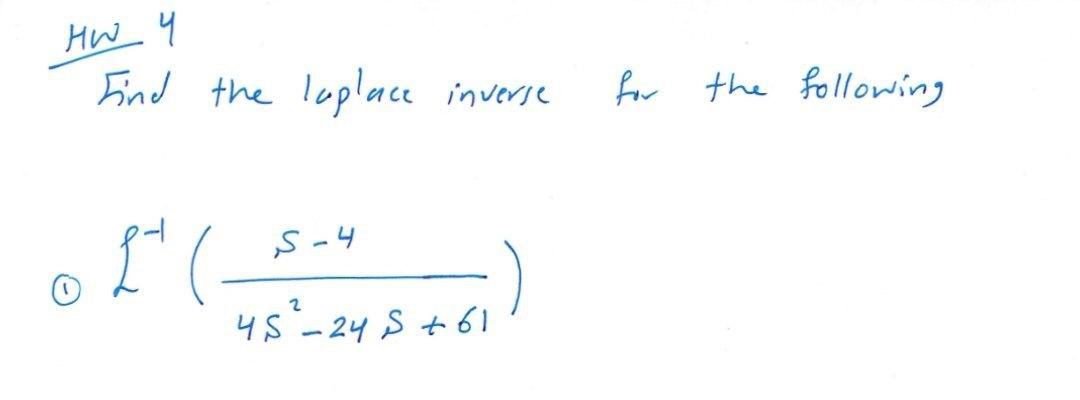 HW 4
Find the laplace inverse for the following
① ℒ⁻¹ ( (s-4) / (4s² - 24s + 61) )